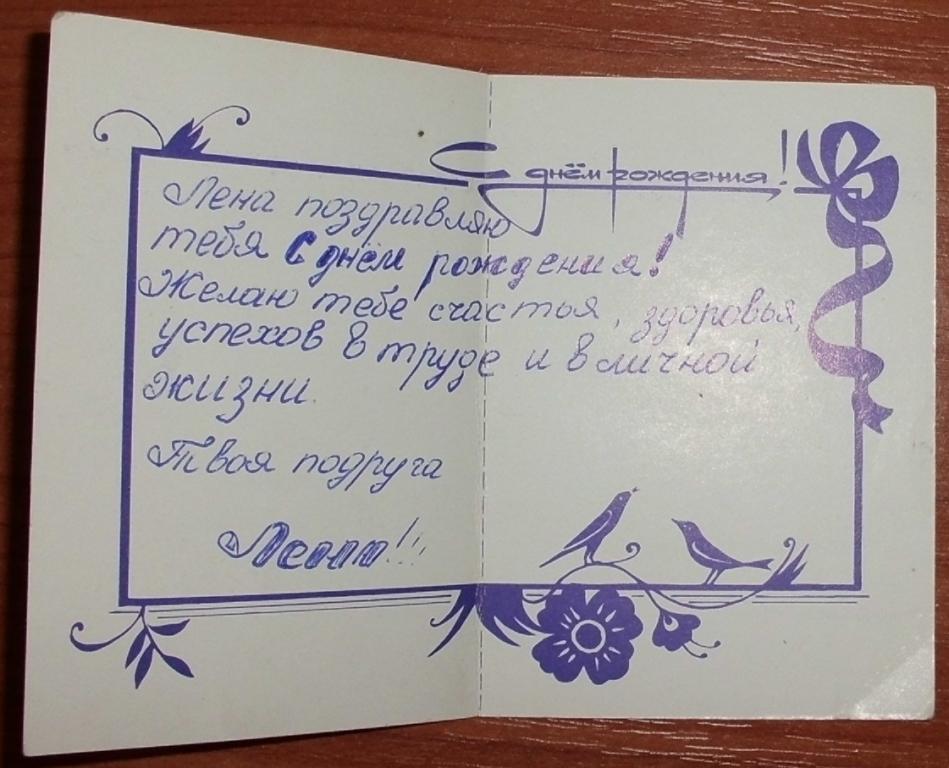 С днём рождения!
Лена поздравляю
тебя С днём рождения!
Желаю тебе счастья, здоровья,
успехов в труде и в личной
жизни.
Твоя подруга